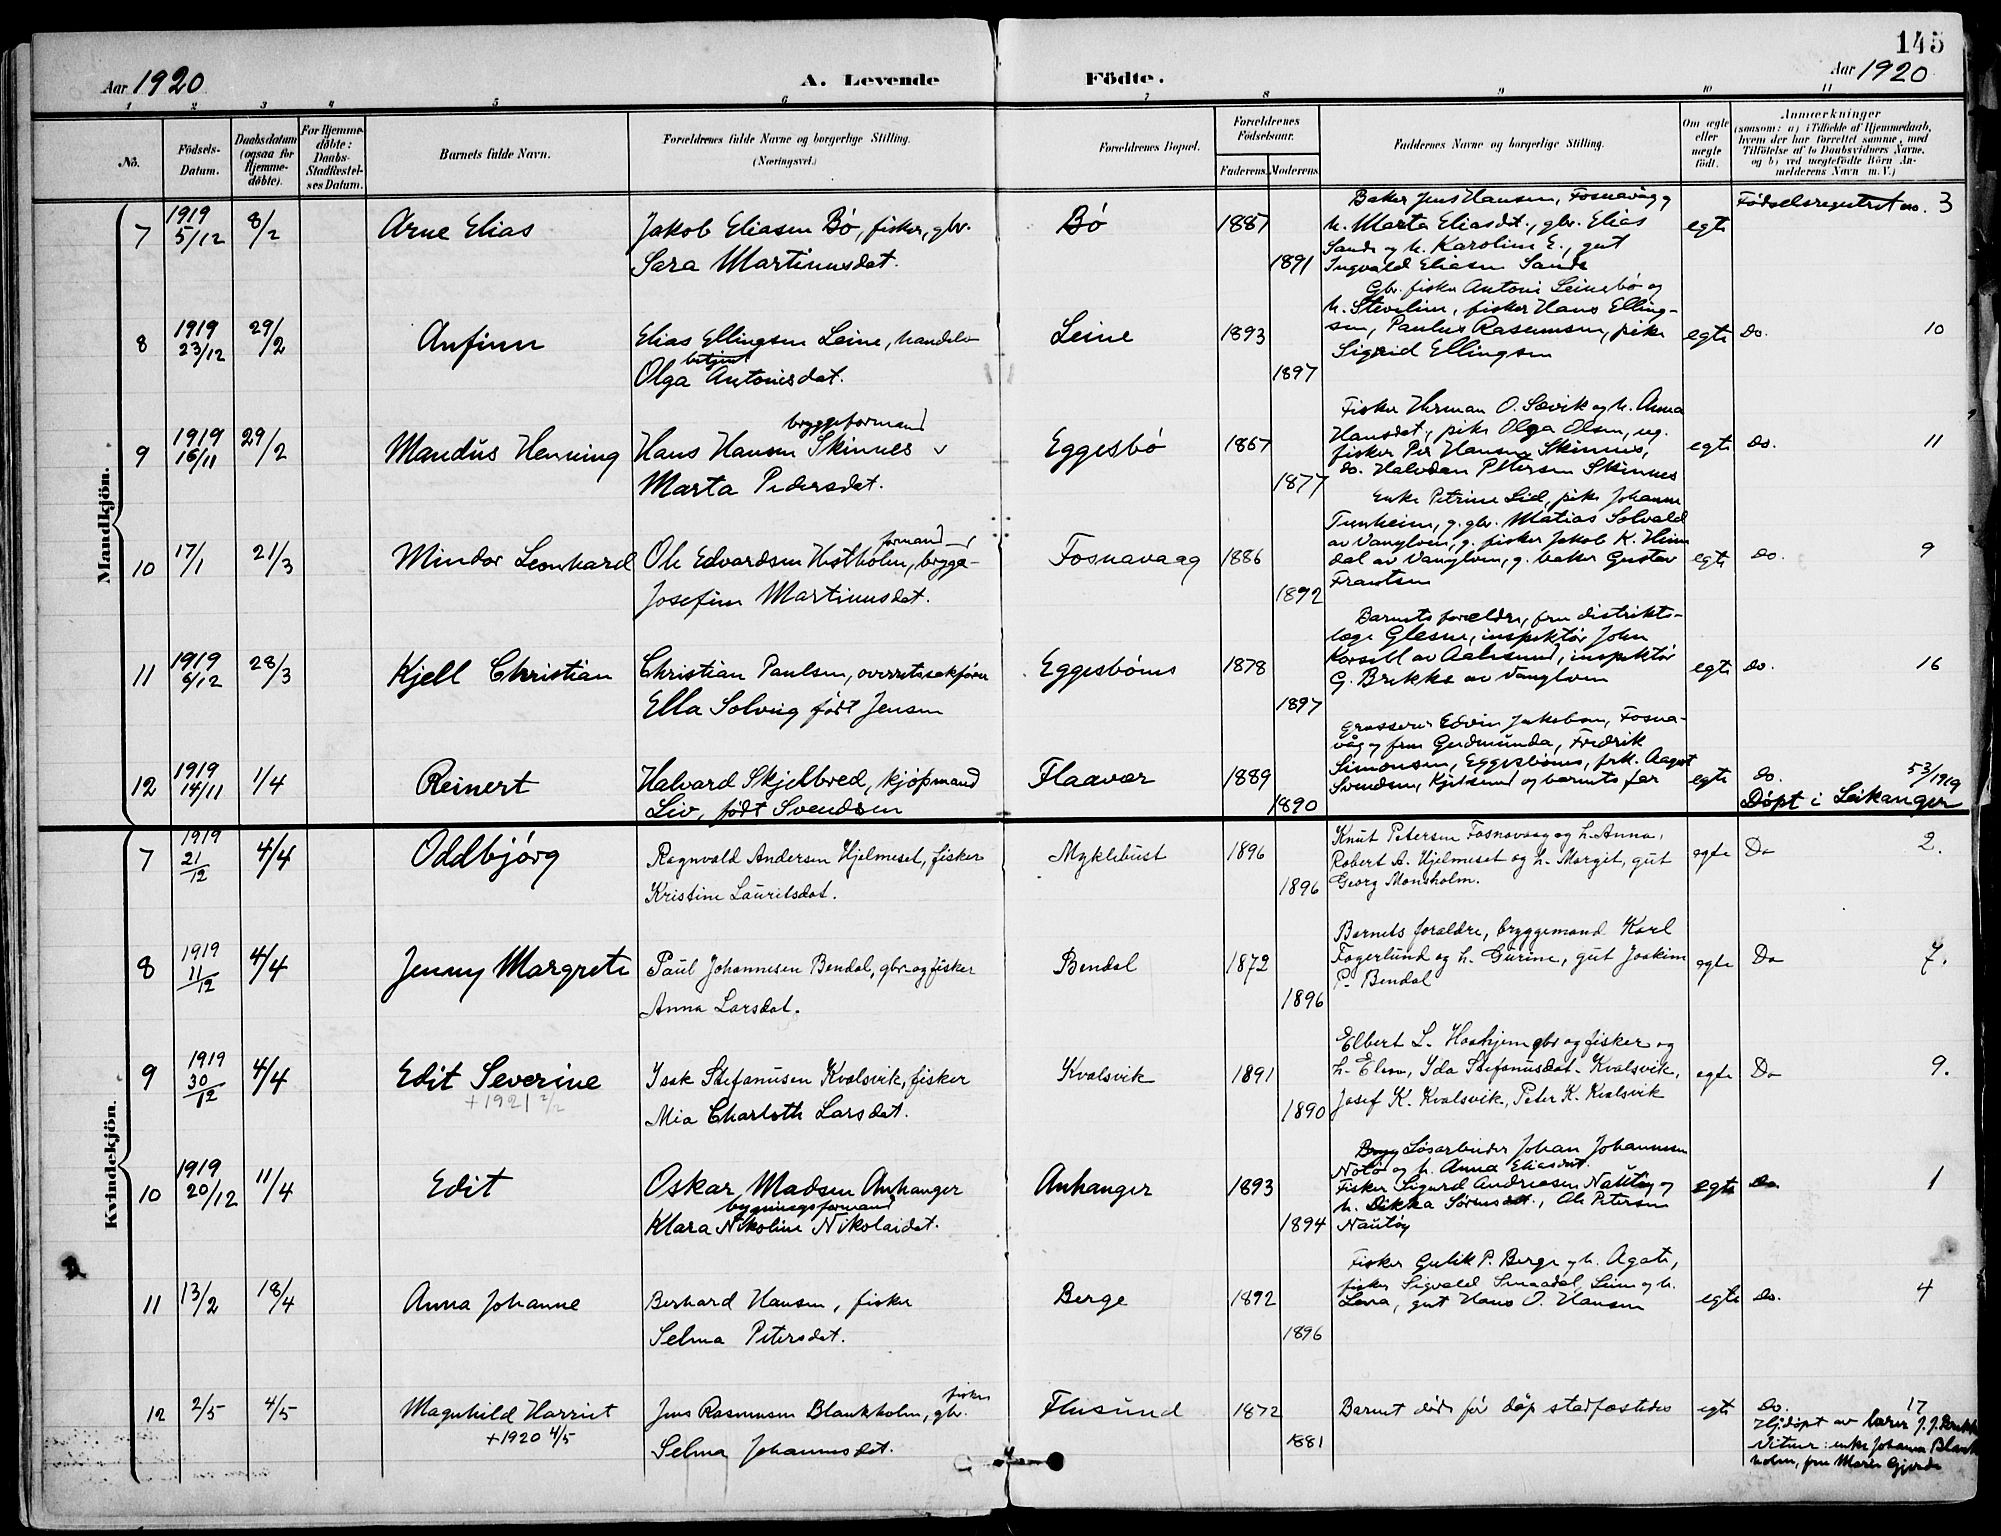 145
Aar 1920
A. Levende Födte.
Aar 1920
1 2 3 4 5 6 7 8 9 10 11
No.
Födsels-Datum.
Daabsdatum (ogsaa for Hjemme-döbte).
For Hjemme-döbte: Daabs-Stadfæstel-ses Datum.
Barnets fulde Navn.
Forældrenes fulde Navne og borgerlige Stilling.
(Næringsvei.)
Forældrenes Bopæl.
Forældrenes Födselsaar.
Faderens. Moderens.
Faddernes Navne og borgerlige Stilling.
Om ægte eller uægte födt.
Anmærkninger
(saasom: a) i Tilfælde af Hjemmedaab, hvem der har forrettet samme, med Tilföielse af to Daabsvidners Navne, og b) ved uægtefödte Börn An-melderens Navn m. V.)
Mandkjön.
7 1919 5/12 8/2 Arne Elias
Jakob Eliasen Bö, fisker, gbr.
Sara Martinusdat.
Bö 1887 1891
Baker Jens Hansen, Fosnavåg og
h. Marta Eliasdt., gbr. Elias
Sande og h. Karoline E., gut
Ingvald Eliasen Sande
egte Födselsregistret no. 3
8 1919 23/12 29/2 Anfinn
Elias Ellingsen Leine, handels-
betjent
Olga Antonisdat.
Leine 1893 1897
Gbr. fisker Antoni Leinebö og
h. Steviline, fisker Hans Elling-
sen, Paulus Rasmussen, pike
Sigrid Ellingsen
egte Do. 10
9 1919 16/11 29/2 Mandus Henning
bryggeformand
Hans Hansen Skinnes
Marta Pedersdat.
Eggesbö 1867 1877
Fisker Herman O. Sævik og h. Anna
Hansdat., pike Olga Olsen, ug.
fisker Per Hansen Skinnes,
do. Halvdan Petersen Skinnes
egte Do. 11
10 17/1 21/3 Mindor Leonhard
formand
Ole Edvardsen Hestholm, brygge-
Josefine Martinusdat.
Fosnavaag 1886 1892
Enke Petrine Lid, pike Johanne
Tunheim, g. gbr. Matias Solvald
av Vanylven, g. fisker Jakob K. Heim
dal av Vanylven, g. baker Gustav
Frantsen
egte Do. 9
11 1919 6/12 28/3 Kjell Christian
Christian Paulsen, overretssakförer
Ella Solveig født Jensen
Eggesbönes 1878 1897
Barnets forældre, fru distrikts-
læge Glesne, inspektör John
av Aalesund, inspektör
G. Brekke av Vanylven
egte Do. 16
12 1919 14/11 1/4 Reinert
Halvard Skjelbred, kjöpmand
Liv, født Svendsen
Flaavær 1889 1890
Grosserer Edvin Jakobsen, Fosna-
våg og frue Gudmunda, Fredrik
Simonsen, Eggesbönes, frk. Aagot
Svendsen, og barnets far
egte Do. 53/1919
Döpt i Leikanger
Kvindekjön.
7 1919 21/12 4/4 Oddbjörg
Ragnvald Andersen Hjelmeset, fisker
Kristine Lauritsdat.
Myklebust 1896 1896
Knut Petersen Fosnavaag og h. Anna,
Robert A. Hjelmeset og h. Margit, gut
Georg Monsholm.
egte Do 2.
8 1919 11/12 4/4 Jenny Margrete
Paul Johannesen Bendal, gbr. og fisker
Anna Larsdat.
Bendal 1872 1896
Barnets forældre, bryggemand Karl
Fagerlund og h. Gurine, gut Joakim
P. Bendal
egte Do 7.
9 1919 30/12 4/4 Edit Severine
+ 1921 2/2
Isak Stefanusen Kvalsvik, fisker
Mia Charlotte Larsdat.
Kvalsvik 1891 1890
Elbert L. Haahjem gbr og fisker og
h. Elen, Ida Stefanusdat. Kvalsvik,
Josef K. Kvalsvik, Peter K. Kvalsvik
egte Do 9.
10 1919 20/12 11/4 Edit
Oskar Madsen Anhanger
bygningsformand
Klara Nikoline Nikolaidat.
Anhanger 1893 1894
Brygg Lösarbeider Johan Johannesen
Notö og h. Anna Eliasdat.
Fisker Sigurd Andreasen Nautöy og
h. Dikka Sörensdt., Ole Petersen
Nautöy
egte Do 1
11 13/2 18/4 Anna Johanne
Berhard Hansen, fisker
Selma Petersdat.
Berge 1892 1896
Fisker Gulik P. Berge og h. Agate,
fisker Sigvald Smaadal, Leine og h.
Lena, gut Hans O. Hansen
egte Do. 4
12 2/5 4/5 Magnhild Harriet
+ 1920 4/5
fisker
Jens Rasmussen Blankholm, gbr.
Selma Johannesdat.
Flusund 1872 1881
Barnet döde för dåp stadfæstedes
egte Do. 17
Hjdöpt av lærer J. J.
Vitner: enke Johanna Blank
holm, fru Maren Gjerde